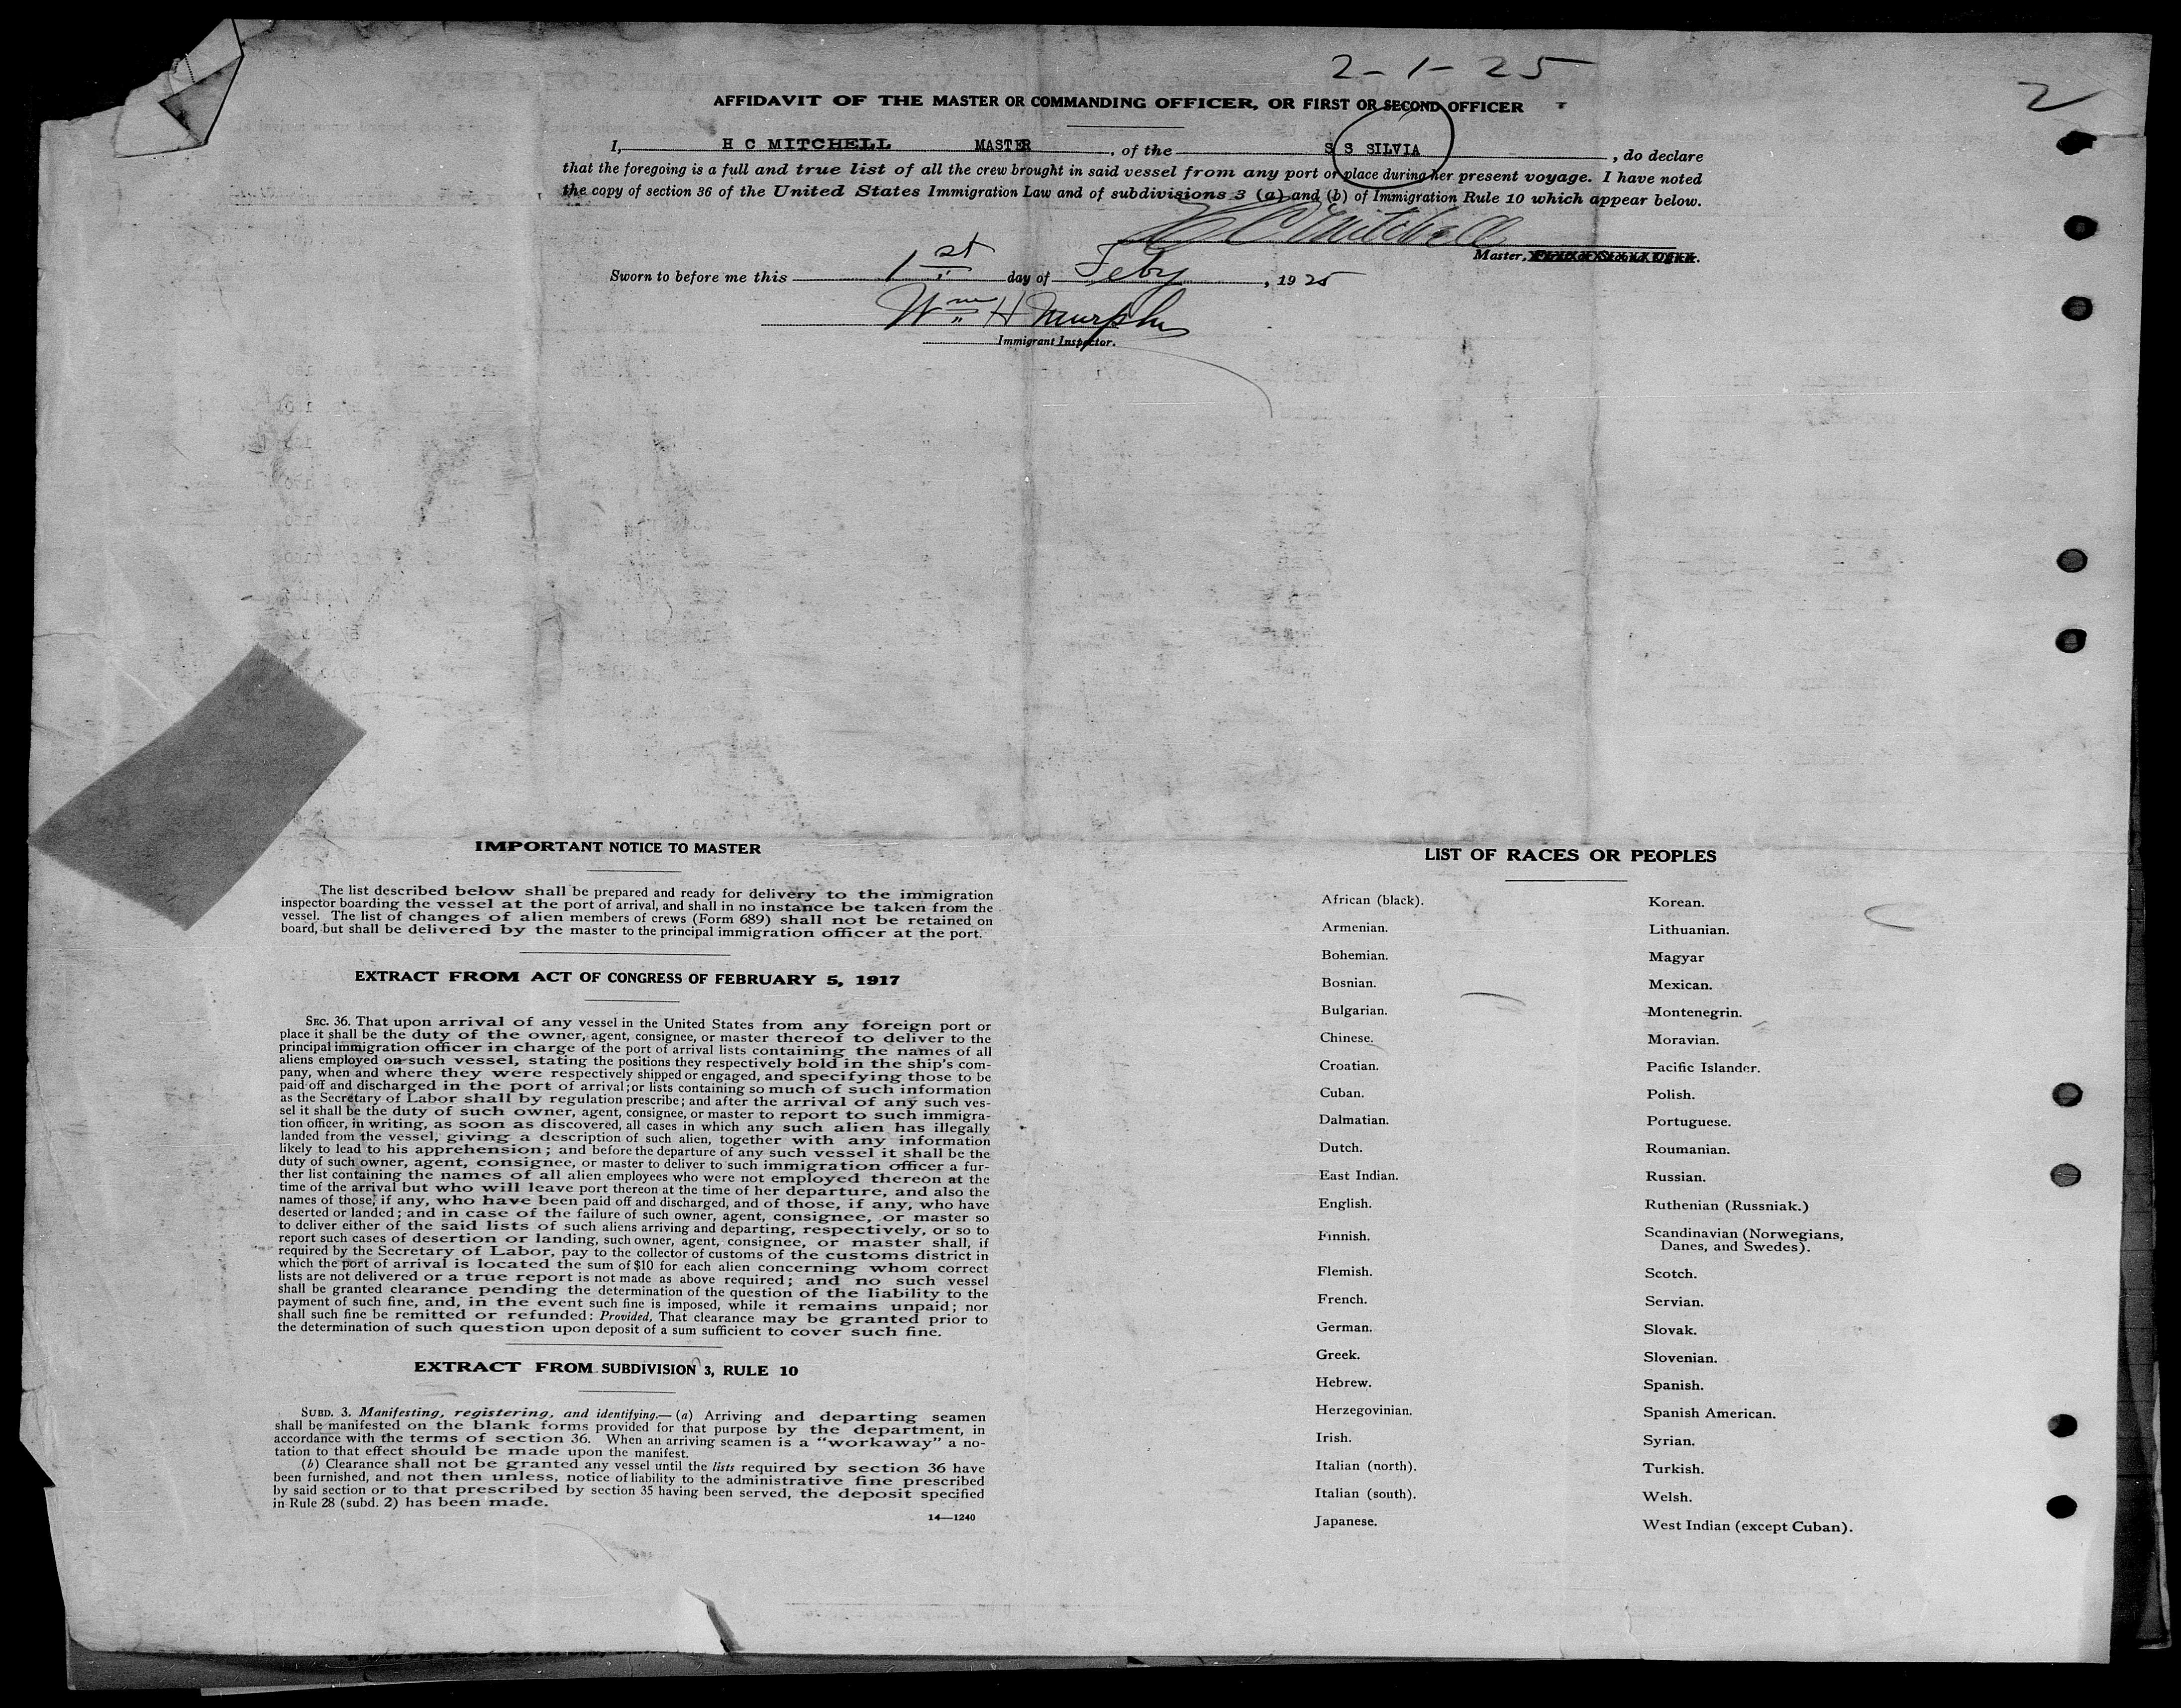 2-1-25
2
AFFIDAVIT OF THE MASTER OR COMMANDING OFFICER, OR FIRST OR SECOND OFFICER
I, H C MITCHELL MASTER, of the S S SILVIA, do declare
that the foregoing is a full and true list of all the crew brought in said vessel from any port or place during her present voyage. I have noted
the copy of section 36 of the United States Immigration Law and of subdivisions 3 (a) and (b) of Immigration Rule 10 which appear below.
H C Mitchell
Master,
Sworn to before me this 1st day of Feby, 1925
Wm H Murphy
Immigrant Inspector.
IMPORTANT NOTICE TO MASTER
The list described below shall be prepared and ready for delivery to the immigration
inspector boarding the vessel at the port of arrival, and shall in no instance be taken from the
vessel. The list of changes of alien members of crews (Form 689) shall not be retained on
board, but shall be delivered by the master to the principal immigration officer at the port.
EXTRACT FROM ACT OF CONGRESS OF FEBRUARY 5, 1917
SEC. 36. That upon arrival of any vessel in the United States from any foreign port or
place it shall be the duty of the owner, agent, consignee, or master thereof to deliver to the
principal immigration officer in charge of the port of arrival lists containing the names of all
aliens employed on such vessel, stating the positions they respectively hold in the ship's com-
pany, when and where they were respectively shipped or engaged, and specifying those to be
paid off and discharged in the port of arrival; or lists containing so much of such information
as the Secretary of Labor shall by regulation prescribe; and after the arrival of any such ves-
sel it shall be the duty of such owner, agent, consignee, or master to report to such immigra-
tion officer, in writing, as soon as discovered, all cases in which any such alien has illegally
landed from the vessel, giving a description of such alien, together with any information
likely to lead to his apprehension; and before the departure of any such vessel it shall be the
duty of such owner, agent, consignee, or master to deliver to such immigration officer a fur-
ther list containing the names of all alien employees who were not employed thereon at the
time of the arrival but who will leave port thereon at the time of her departure, and also the
names of those, if any, who have been paid off and discharged, and of those, if any, who have
deserted or landed; and in case of the failure of such owner, agent, consignee, or master so
to deliver either of the said lists of such aliens arriving and departing, respectively, or so to
report such cases of desertion or landing, such owner, agent, consignee, or master shall, if
required by the Secretary of Labor, pay to the collector of customs of the customs district in
which the port of arrival is located the sum of $10 for each alien concerning whom correct
lists are not delivered or a true report is not made as above required; and no such vessel
shall be granted clearance pending the determination of the question of the liability to the
payment of such fine, and, in the event such fine is imposed, while it remains unpaid; nor
shall such fine be remitted or refunded: Provided, That clearance may be granted prior to
the determination of such question upon deposit of a sum sufficient to cover such fine.
EXTRACT FROM SUBDIVISION 3, RULE 10
SUBD. 3. Manifesting, registering, and identifying.—(a) Arriving and departing seamen
shall be manifested on the blank forms provided for that purpose by the department, in
accordance with the terms of section 36. When an arriving seamen is a "workaway" a no-
tation to that effect should be made upon the manifest.
(b) Clearance shall not be granted any vessel until the lists required by section 36 have
been furnished, and not then unless, notice of liability to the administrative fine prescribed
by said section or to that prescribed by section 35 having been served, the deposit specified
in Rule 28 (subd. 2) has been made.
14—1240
LIST OF RACES OR PEOPLES
African (black).
Armenian.
Bohemian.
Bosnian.
Bulgarian.
Chinese.
Croatian.
Cuban.
Dalmatian.
Dutch.
East Indian.
English.
Finnish.
Flemish.
French.
German.
Greek.
Hebrew.
Herzegovinian.
Irish.
Italian (north).
Italian (south).
Japanese.
Korean.
Lithuanian.
Magyar
Mexican.
Montenegrin.
Moravian.
Pacific Islander.
Polish.
Portuguese.
Roumanian.
Russian.
Ruthenian (Russniak.)
Scandinavian (Norwegians,
Danes, and Swedes).
Scotch.
Servian.
Slovak.
Slovenian.
Spanish.
Spanish American.
Syrian.
Turkish.
Welsh.
West Indian (except Cuban).